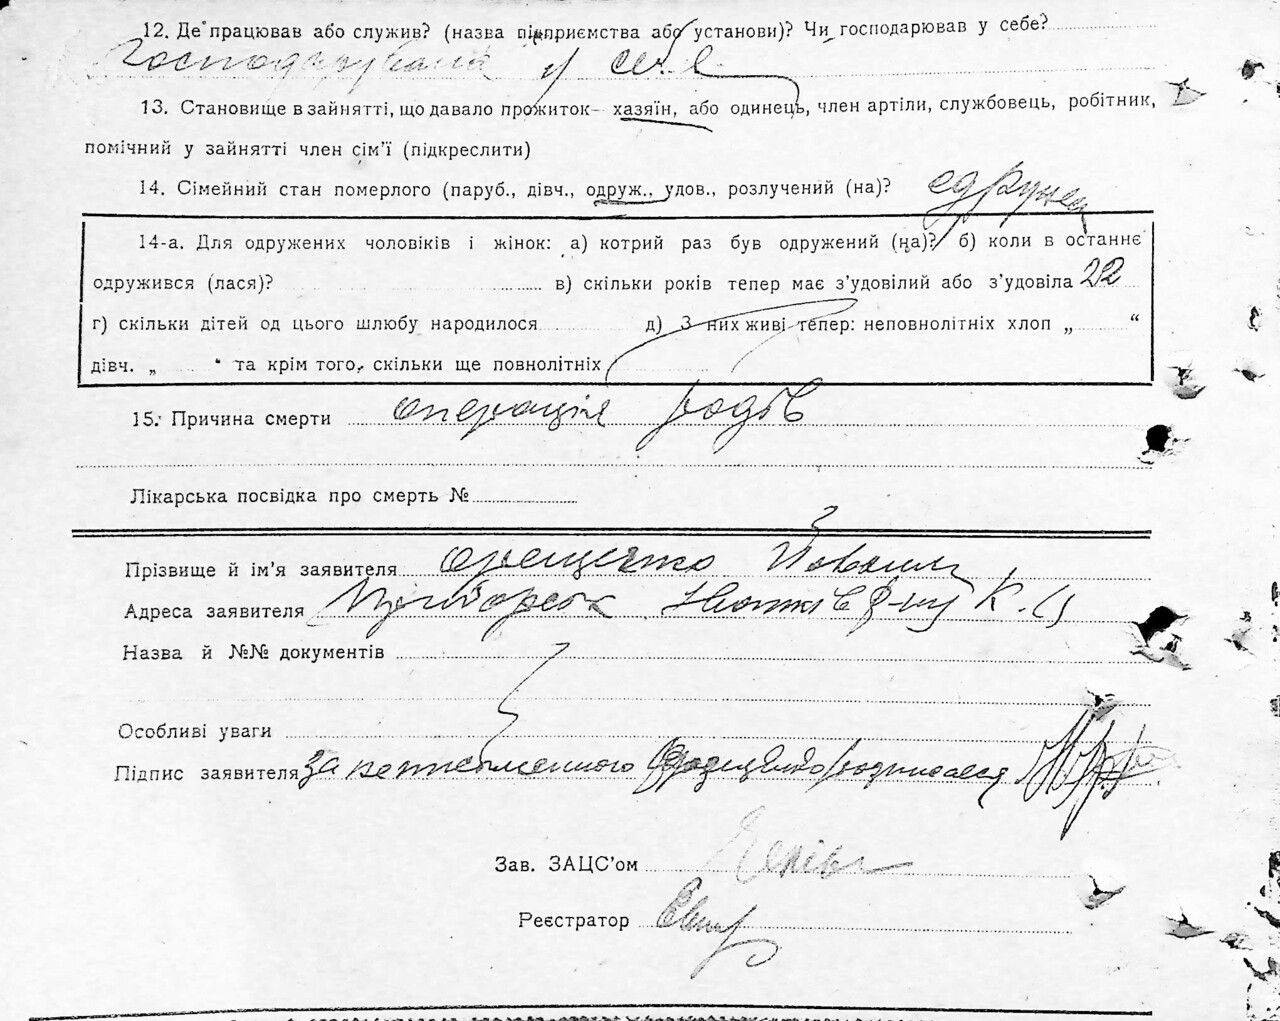 12. Де працював або служив? (назва підприємства або установи)? Чи господарював у себе?
Господарювала у себе
13. Становище в зайнятті, що давало прожиток— хазяїн, або одинець, член артіли, службовець, робітник,
помічний у зайнятті член сім’ї (підкреслити)
14. Сімейний стан померлого (паруб., дівч., одруж., удов., розлучений (на)?
14-а. Для одружених чоловіків і жінок: а) котрий раз був одружений (на)? б) коли в останнє
одружився (лася)? в) скільки років тепер має з’удовілий або з’удовіла 22
г) скільки дітей од цього шлюбу народилося д) З них живі тепер: неповнолітніх хлоп „ “
дівч. „ “ та крім того, скільки ще повнолітніх
15. Причина смерти операція родів
Лікарська посвідка про смерть №
Прізвище й ім’я заявителя
Адреса заявителя
Назва й №№ документів
Особливі уваги
Підпис заявителя За неписьменного
Зав. ЗАЦС’ом
Реєстратор